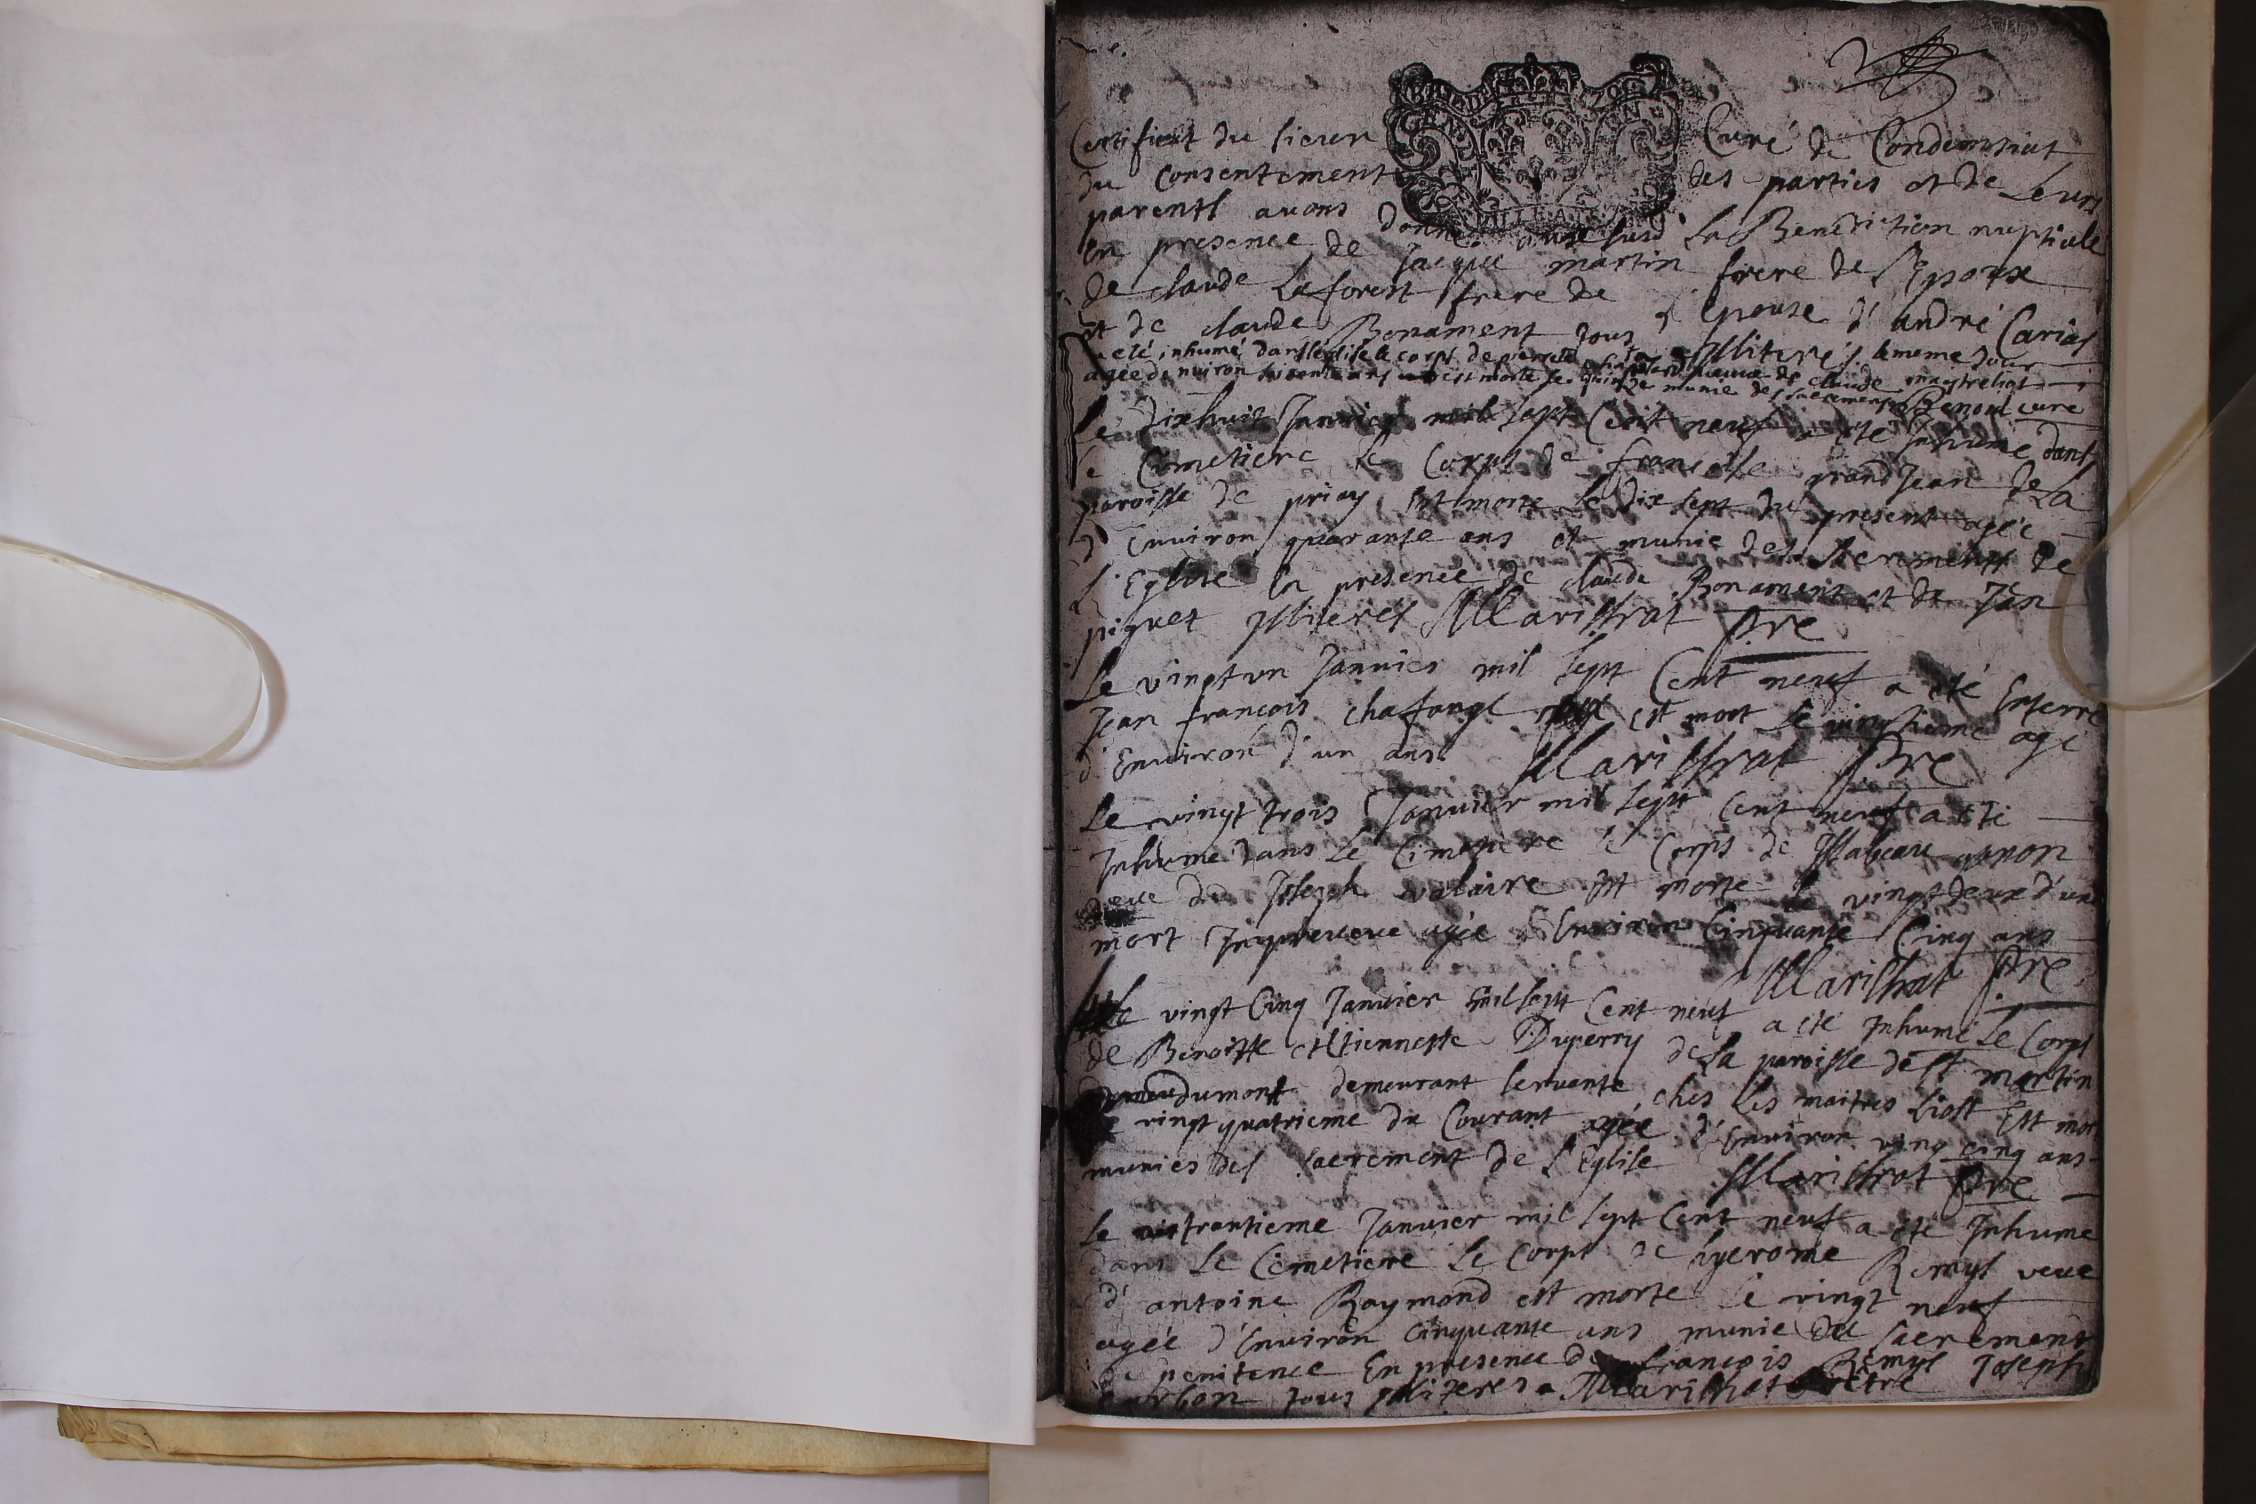 Certificat du sieur Curé de Condemsiat
du consentement des parties et de Leurs
parents avons donné La Benediction nuptiale
En presence de Jacque martin frere de l'Epoux
de claude Laforest frere de L'epouse d'andré Carias
et de claude Bonament tous Illiteréz le meme jour
a eté inhumé dans l'eglise le corps de pierrette veuve de claude
agée denviron soixante ans est morte le quinze munie des sacremens Benoid curé
Le dixhuit Janvier mil sept Cent neuf a été Inhumé dans
le Cimetiere le Corps de francoise grandJean de La
paroisse de priay Est morte Le dix sept du present agée
d'Environ quarante ans et munie des sacrements de
L'Eglise En presence de claude Bonament et de Jan
piquet Illiterés Marishrat Pre
Le vingt un Janvier mil sept Cent neuf a été Enterré
Jean françois chafange est mort le agé
d'Environ d'un ans Marishrat Pre
Le vingt trois Janvier mil sept cent neuf a été
Inhumé dans Le Cimetiere le Corps de Isabeau
veve de Joseph volaire Est morte le vingt deux d'une
mort Impreveue agée d'Environ Cinquante Cinq ans
Marishrat Pre
Le vingt Cinq Janvier mil sept Cent neuf a été Inhumé Le Corps
de Benoitte Etiennette Duperry de La paroisse de St martin
dumont demeurant servante ches Les maitres Liost Est mor
vingt quatrieme du Courant agée d'Environ ving cinq ans
munies des sacrement de l'Eglise Marishrat Pre
Le trantieme Janvier mil sept Cent neuf a été Inhumé
dans Le Cimetiere Le Corps de hyerome Remyl veve
d'antoine Raymond est morte Le vingt neuf
agée d'Environ Cinquante ans munie du sacrement
de penitence En presence de françois Remyl Joseph
tous Illiterés Marishrat Pretre